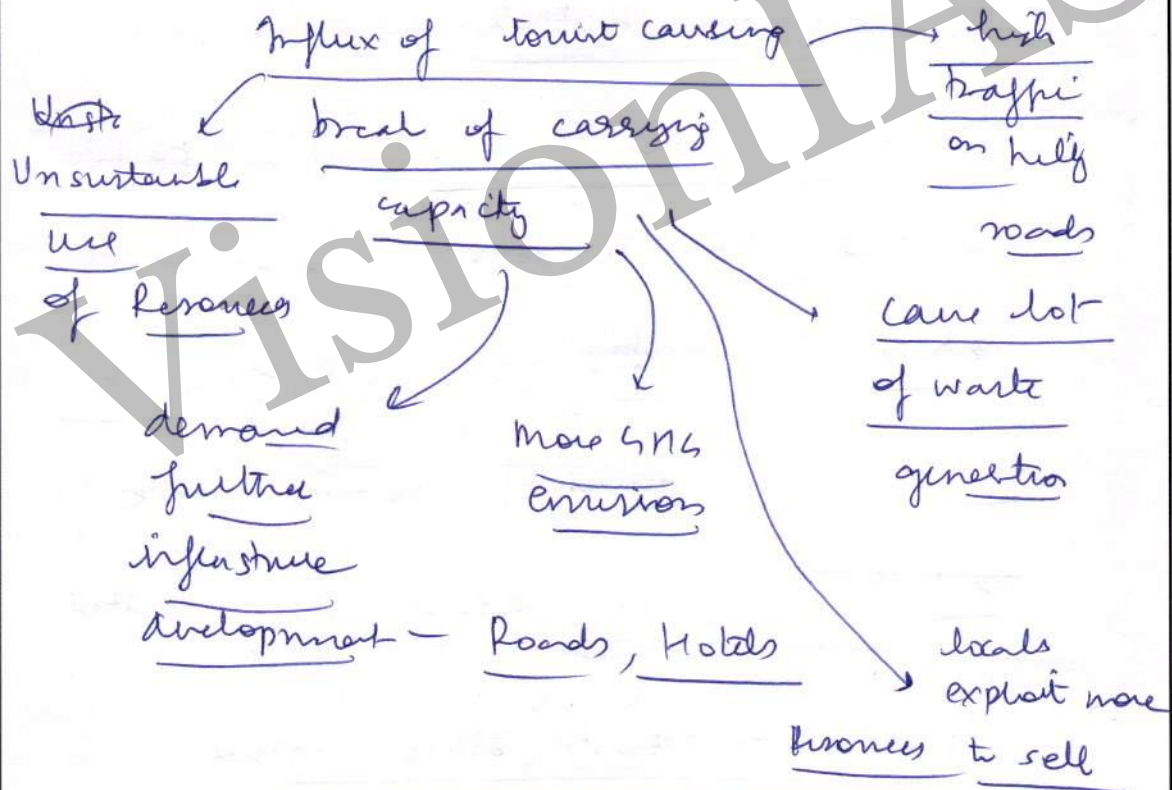 Influx of tourist causing
high
traffic
on hilly
roads
breach of carrying
capacity
Unsustainable
use
of Resources
cause lot
of waste
generation
demand
further
infrastructure
development - Roads, Hotels
More GHG
emissions
locals
exploit more
Resources to sell
VisionIAS